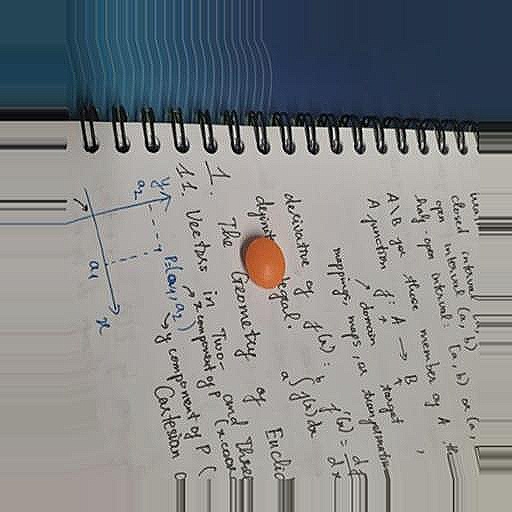 closed interval (a, b) or (a,
open interval: [a, b)
half-open interval:
A\B for those member of A, the
A function f: A → B,
domain target
mappings, maps, or transformation
derivative of f(x): f'(x) = df/dx
definite integral. b∫a f(x)dx
1. The Geometry of Euclid
1.1. Vectors in Two- and Three
x component of P (xcoor
y component of P (
Cartesian
y
a₂
P=(a₁, a₂)
a₁
x